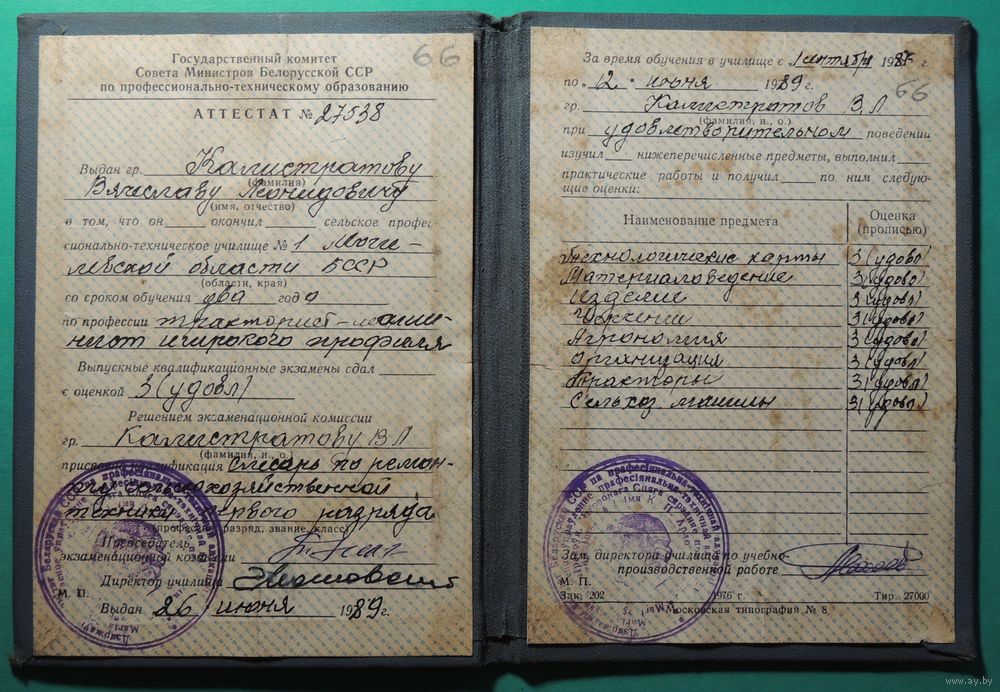 66
Государственный комитет
Совета Министров Белорусской ССР
по профессионально-техническому образованию
АТТЕСТАТ № 27538
Выдан гр. Калистратову
(фамилия)
Вячеславу Леонидовичу
(имя, отчество)
в том, что он окончил сельское профес
сионально-техническое училище № 1 Моги-
лёвской области БССР
(области, края)
со сроком обучения два года
по профессии тракторист-маши-
нист широкого профиля
Выпускные квалификационные экзамены сдал
с оценкой 3 (удовл)
Решением экзаменационной комиссии
гр. Калистратову В Л
(фамилия, и., о.)
присвоена квалификация слесарь по ремон-
ту сельскохозяйственной
техники разряда
(профессия, разряд, звание, класс)
Председатель
экзаменационной комиссии
Директор училища
М. П.
Выдан 26 июня 1989 г.
За время обучения в училище с 1 сентября 1987 г.
по 12 июня 1989 г.
66
гр. Калистратов В. Л
(фамилия, и., о.)
при удовлетворительном поведении
изучил нижеперечисленные предметы, выполнил
практические работы и получил по ним следую-
щие оценки:
Наименование предмета Оценка
(прописью)
Технологические карты 3 (удовл)
Материаловедение 3 (удовл)
Изделие 3 (удовл)
Черчение 3 (удовл)
Агрономия 3 (удовл)
Организация 3 (удовл)
Тракторы 3 (удовл)
Сельхоз. машины 3 (удовл)
Зам. директора училища по учебно-
производственной работе
М. П.
Зак. 202 1976 г. Тир. 27000
Московская типография № 8
www.ay.by